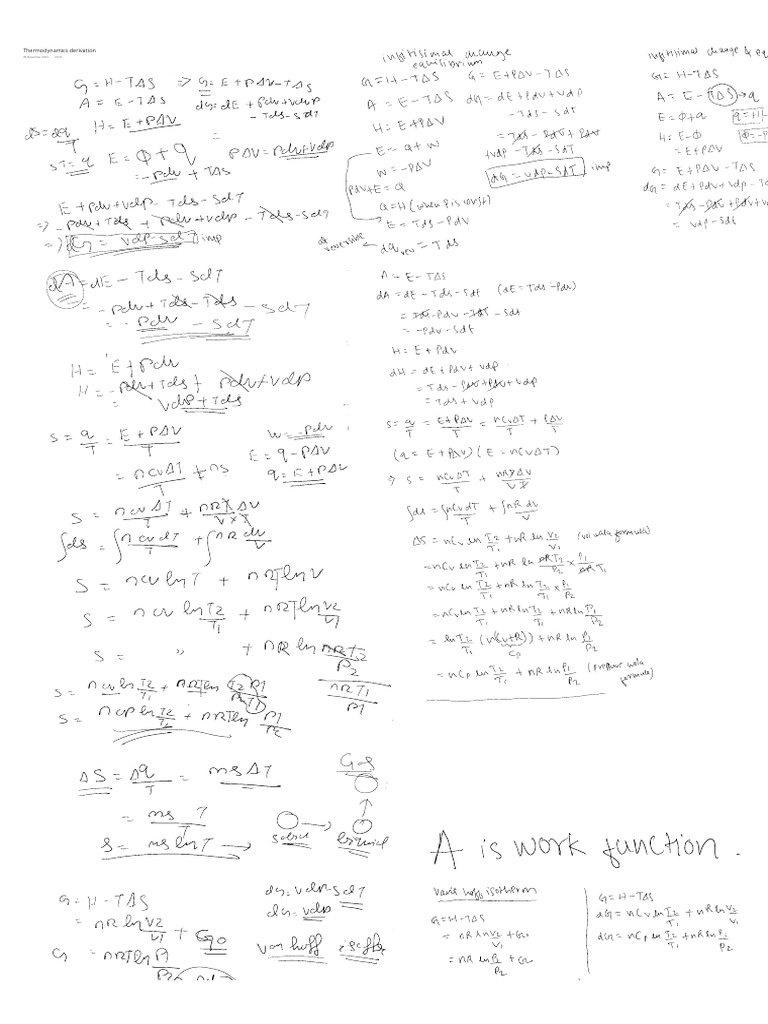 Thermodynamics derivation
G = H - TΔS ⇒ G = E + PΔV - TΔS
A = E - TΔS dG = dE + pdv + vdp - Tds - SdT
H = E + PΔV
dS = dq/T
ST = q E = Φ + q PΔV = pdv + vdp
= -pdv + TΔS
E + pdv + vdp - Tds - SdT
⇒ -pdv + Tds + pdv + vdp - Tds - SdT
⇒ dG = vdp - SdT imp
dA = dE - Tds - SdT
= -pdv + Tds - Tds - SdT
= -pdv - SdT
H = E + pdv
H = -pdv + Tds + pdv + vdp
= vdp + Tds
S = q/T = E + PΔV/T w = -pdv
E = q - PΔV
= ncvΔT/T + q = E + PΔV
S = ncvΔT/T + nRTΔV/V×T
∫ds = ∫ncvdT/T + ∫nR dv/V
S = ncv lnT + nRT lnV
S = ncv ln T2/T1 + nRT ln V2/V1
S = " + nR ln nRT2/P2 / nRT1/P1
S = ncv ln T2/T1 + nRT ln T2 P1/P2 T1
S = ncp ln T2/T1 + nRT ln P1/P2
ΔS = Δq/T = msΔT Gas
= ms T/T solid → liquid
S = ms lnT →
G = H - TΔS dG = vdp - SdT
= nR ln V2/V1 + G0 dG = vdp
G = nRT ln P1 van hoff isotherm
infitisimal change
equilibrium
G = H - TΔS G = E + PΔV - TΔS
A = E - TΔS dG = dE + Pdv + vdp - Tds - SdT
H = E + PΔV = Tds - Pdv + Pdv + vdp - Tds - SdT
E = q + w dG = vdp - SdT imp
w = -PΔV
PΔV + E = Q
Q = H (when P is const)
E = Tds - Pdv
reversible dq rev = Tds
A = E - TΔS
dA = dE - Tds - Sdt (dE = Tds - Pdv)
= Tds - Pdv - Tds - Sdt
= -Pdv - Sdt
H = E + Pdv
dH = dE + Pdv + vdp
= Tds - Pdv + Pdv + vdp
= Tds + vdp
S = q/T = E + PΔV/T = nCvΔT/T + PΔV/T
(q = E + PΔV) (E = nCvΔT)
⇒ S = nCvΔT/T + nRTΔV/VT
∫ds = ∫nCvdT/T + ∫nR dv/V
ΔS = nCv ln T2/T1 + nR ln V2/V1 (vol wala formula)
= nCv ln T2/T1 + nR ln nRT2/P2 × P1/nRT1
= nCv ln T2/T1 + nR ln T2/T1 × P1/P2
= nCv ln T2/T1 + nR ln T2/T1 + nR ln P1/P2
= ln T2/T1 (n(Cv+R)) + nR ln P1/P2
Cp
= nCp ln T2/T1 + nR ln P1/P2 (pressure wala formula)
A is work function.
Vant hoff isotherm
G = H - TΔS
= nR ln V2/V1 + G0
= nR ln P1/P2 + G0
G = H - TΔS
dG = nCv ln T2/T1 + nR ln V2/V1
dG = nCp ln T2/T1 + nR ln P1/P2
infitisimal change & eq
G = H - TΔS
A = E - TΔS → q
E = Φ + q q = H
H = E - Φ Φ = -P
= E + PΔV
G = E + PΔV - TΔS
dG = dE + Pdv + vdp - T
= Tds - Pdv + Pdv + v
= vdp - SdT